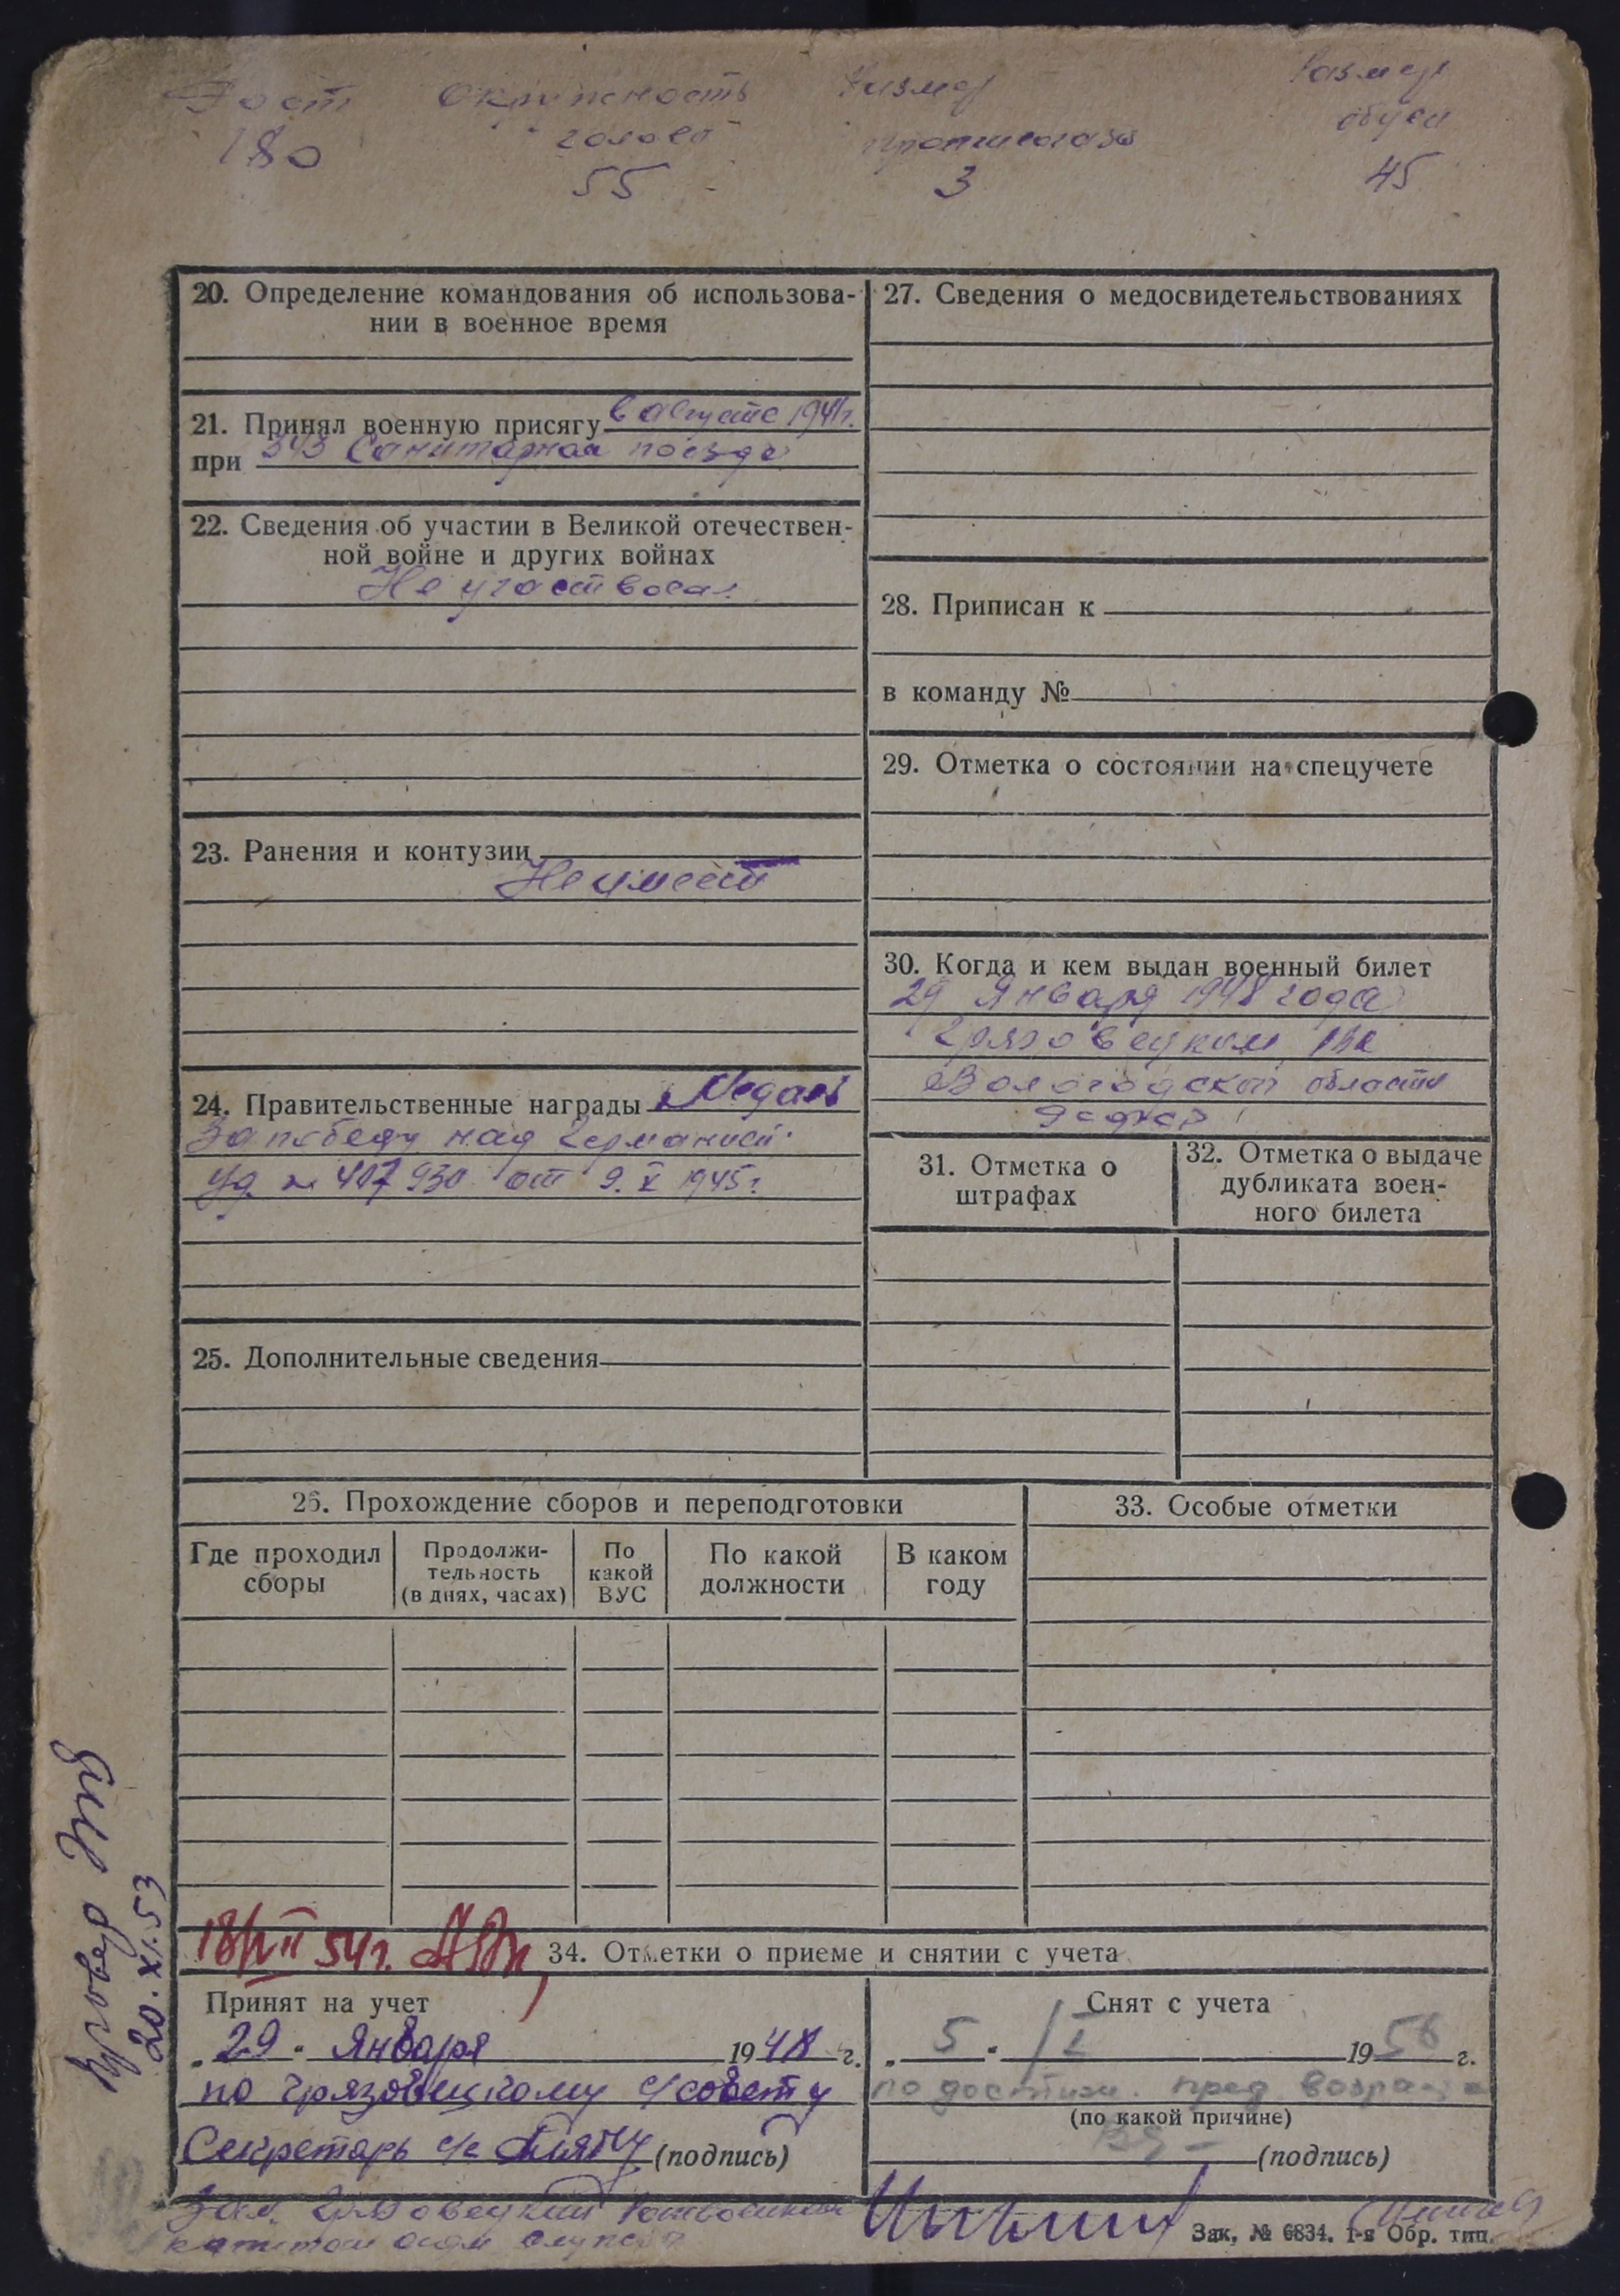 Рост Окружность Размер Размер
головы противогаза обуви
180 55 3 45
20. Определение командования об использова-
нии в военное время
21. Принял военную присягу в августе 1941г.
при 343 Санитарном поезде
22. Сведения об участии в Великой отечествен-
ной войне и других войнах
Не участвовал
23. Ранения и контузии
Не имеет
24. Правительственные награды Медаль
За победу над Германией
Уд. № 407930 от 9.X 1945г.
25. Дополнительные сведения
27. Сведения о медосвидетельствованиях
28. Приписан к
в команду №
29. Отметка о состоянии на спецучете
30. Когда и кем выдан военный билет
29 Января 1948 года
Грязовецким РВК
Вологодской области
31. Отметка о
штрафах
32. Отметка о выдаче
дубликата воен-
ного билета
26. Прохождение сборов и переподготовки
Где проходил
сборы
Продолжи-
тельность
(в днях, часах)
По
какой
ВУС
По какой
должности
В каком
году
33. Особые отметки
Провер
20.XI.53
54г.
34. Отметки о приеме и снятии с учета
Принят на учет
„29“ Января 1948 г.
по Грязовецкому с/совету
Секретарь с/с (подпись)
Снят с учета
„5“ /I 1956 г.
по достиж. пред. возраста
(по какой причине)
(подпись)
Зам. Грязовецкий
Зак. № 6834. 1-я Обр. тип.